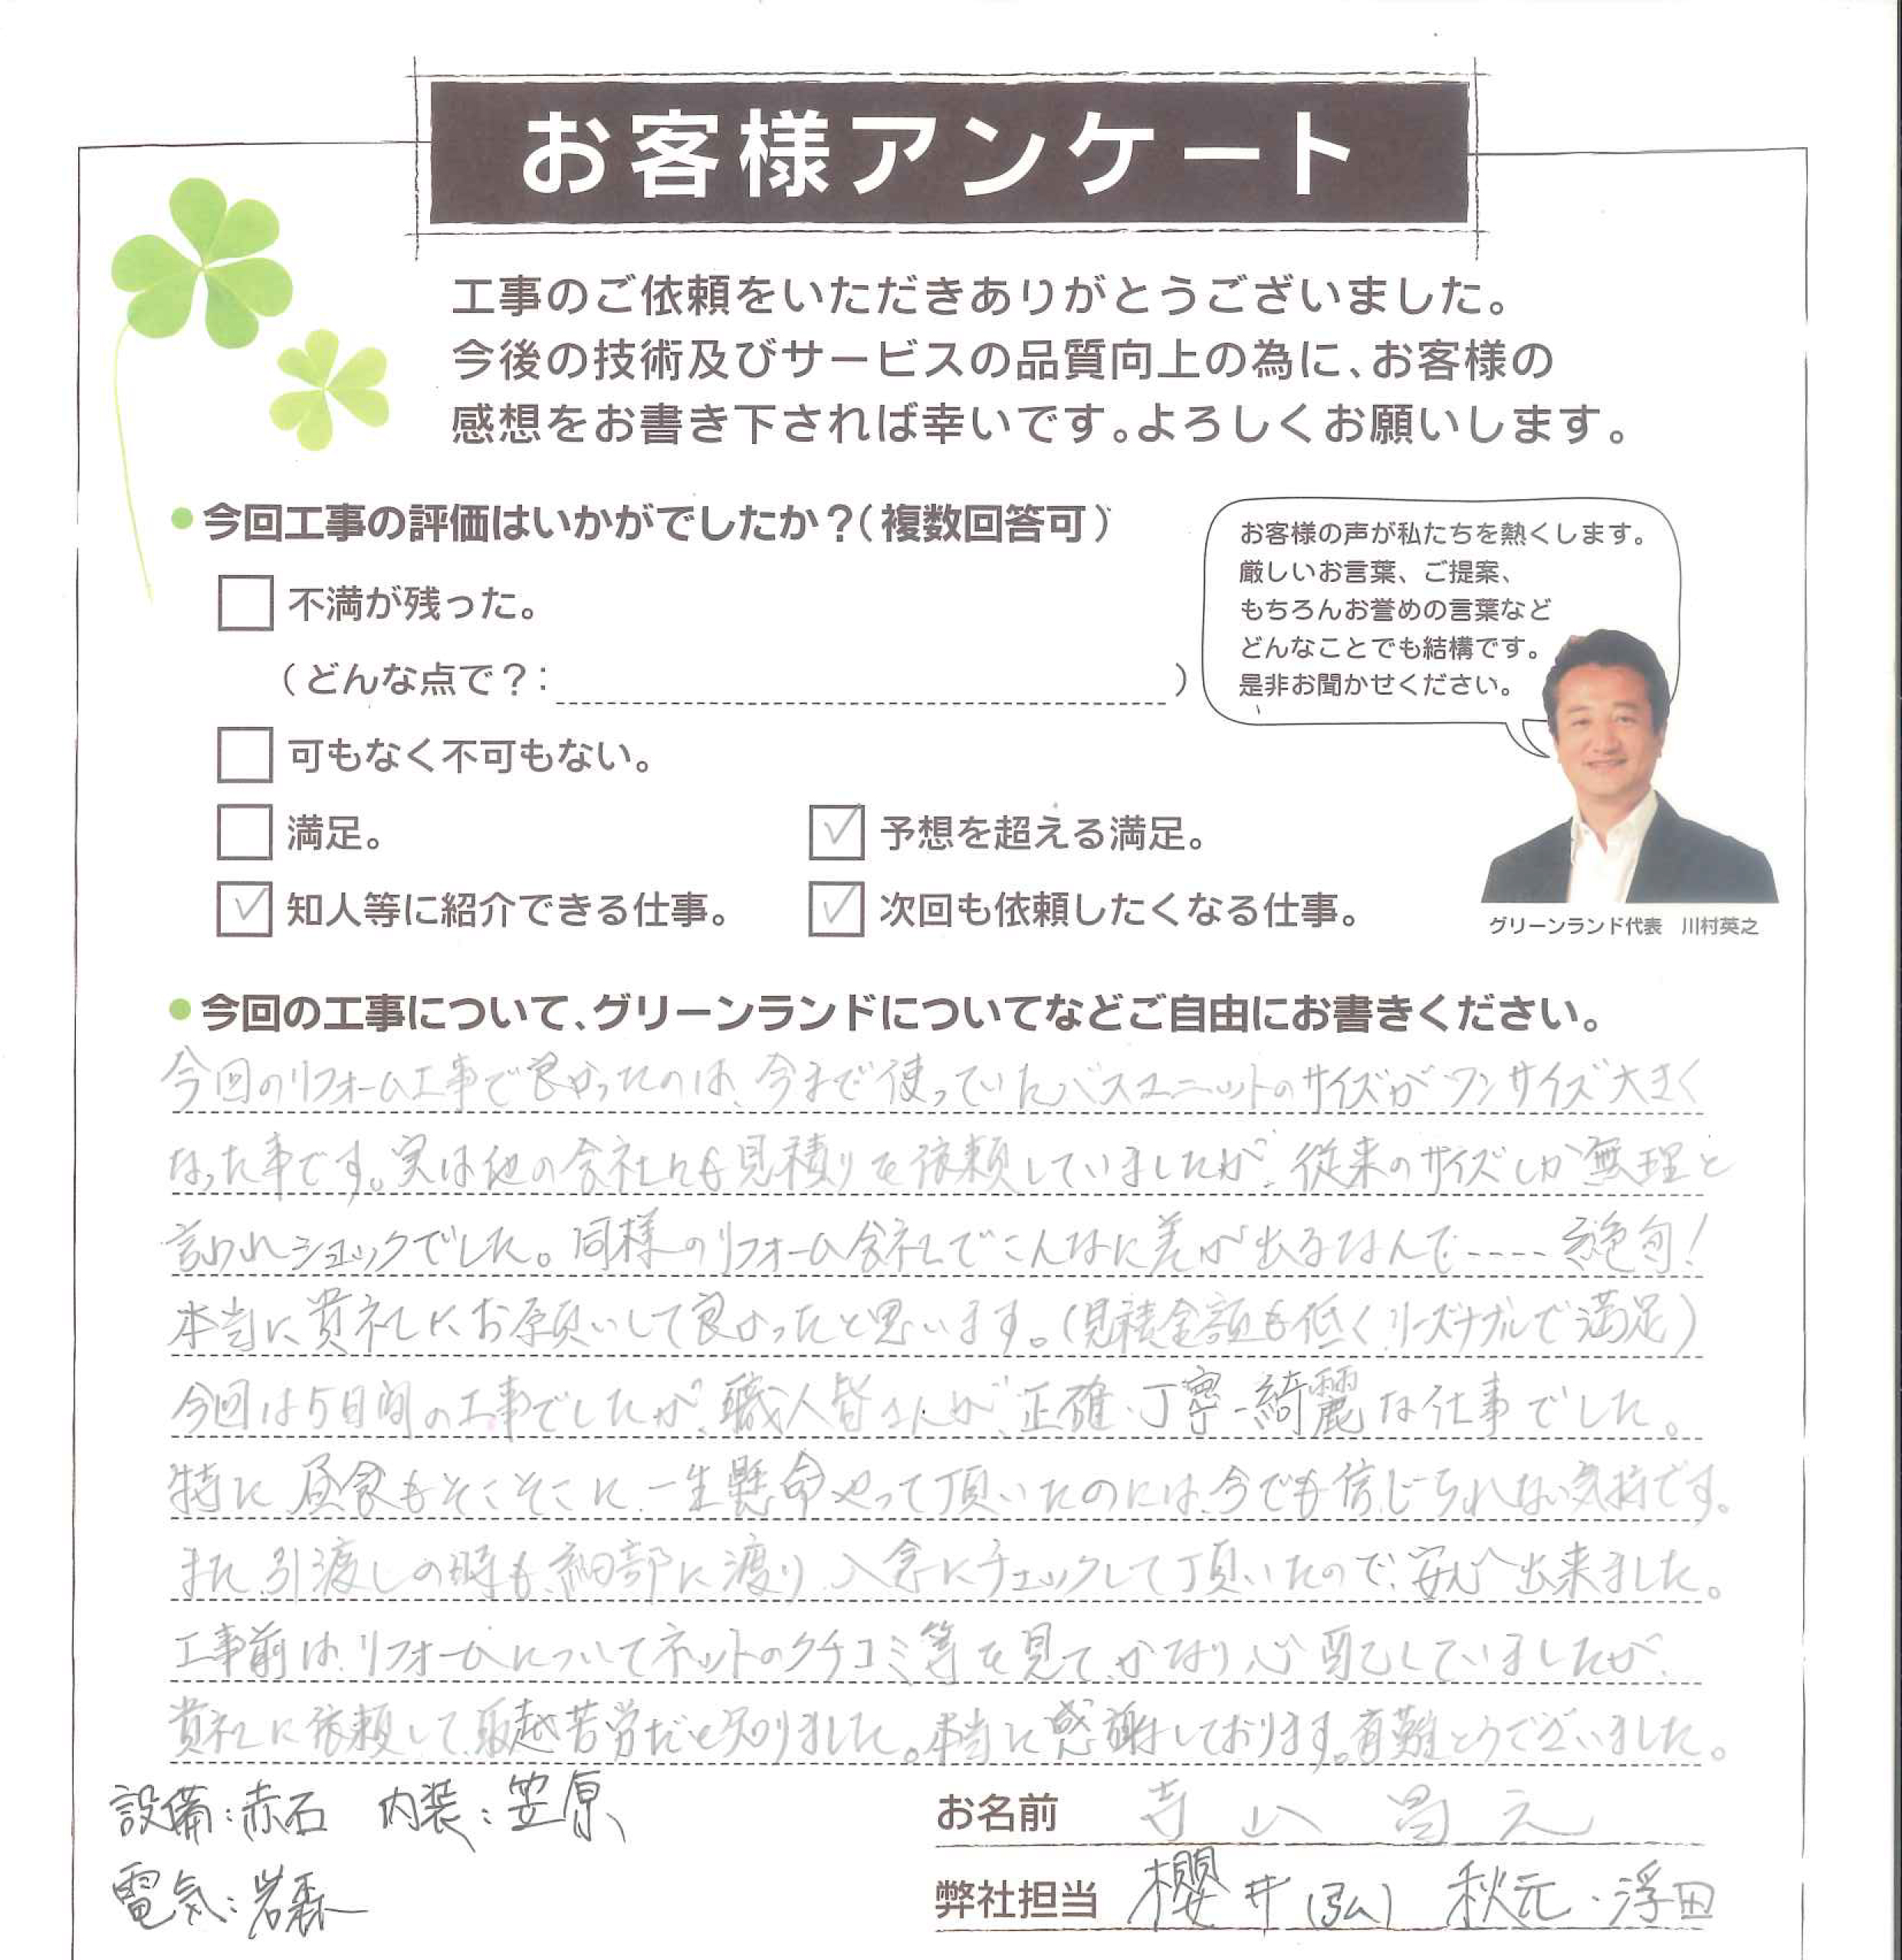 お客様アンケート
工事のご依頼をいただきありがとうございました。
今後の技術及びサービスの品質向上の為に、お客様の
感想をお書き下されば幸いです。よろしくお願いします。
今回工事の評価はいかがでしたか？（複数回答可）
不満が残った。
（どんな点で？： ）
可もなく不可もない。
満足。
予想を超える満足。
知人等に紹介できる仕事。
次回も依頼したくなる仕事。
お客様の声が私たちを熱くします。
厳しいお言葉、ご提案、
もちろんお誉めの言葉など
どんなことでも結構です。
是非お聞かせください。
グリーンランド代表 川村英之
今回の工事について、グリーンランドについてなどご自由にお書きください。
今回のリフォーム工事で良かったのは、今まで使っていたバスユニットのサイズがワンサイズ大きく
なった事です。実は他の会社にも見積りを依頼していましたが、従来のサイズしか無理と
言われショックでした。同様のリフォーム会社でこんなに差が出るなんて----絶句！
本当に貴社にお願いして良かったと思います。（見積金額も低くリーズナブルで満足）
今回は5日間の工事でしたが、職人皆さんが、正確・丁寧・綺麗な仕事でした。
特に昼食もそこそこに、一生懸命やって頂いたのには、今でも信じられない気持です。
また、引渡しの時も、細部に渡り、入念にチェックして頂いたので、安心出来ました。
工事前は、リフォームについてネットのクチコミ等を見て、かなり心配していましたが、
貴社に依頼して、取越苦労だと知りました。本当に感謝しております。有難とうございました。
設備：赤石 内装：笠原
電気：岩森
お名前 寺山 昌元
弊社担当 櫻井（弘） 秋元・浮田